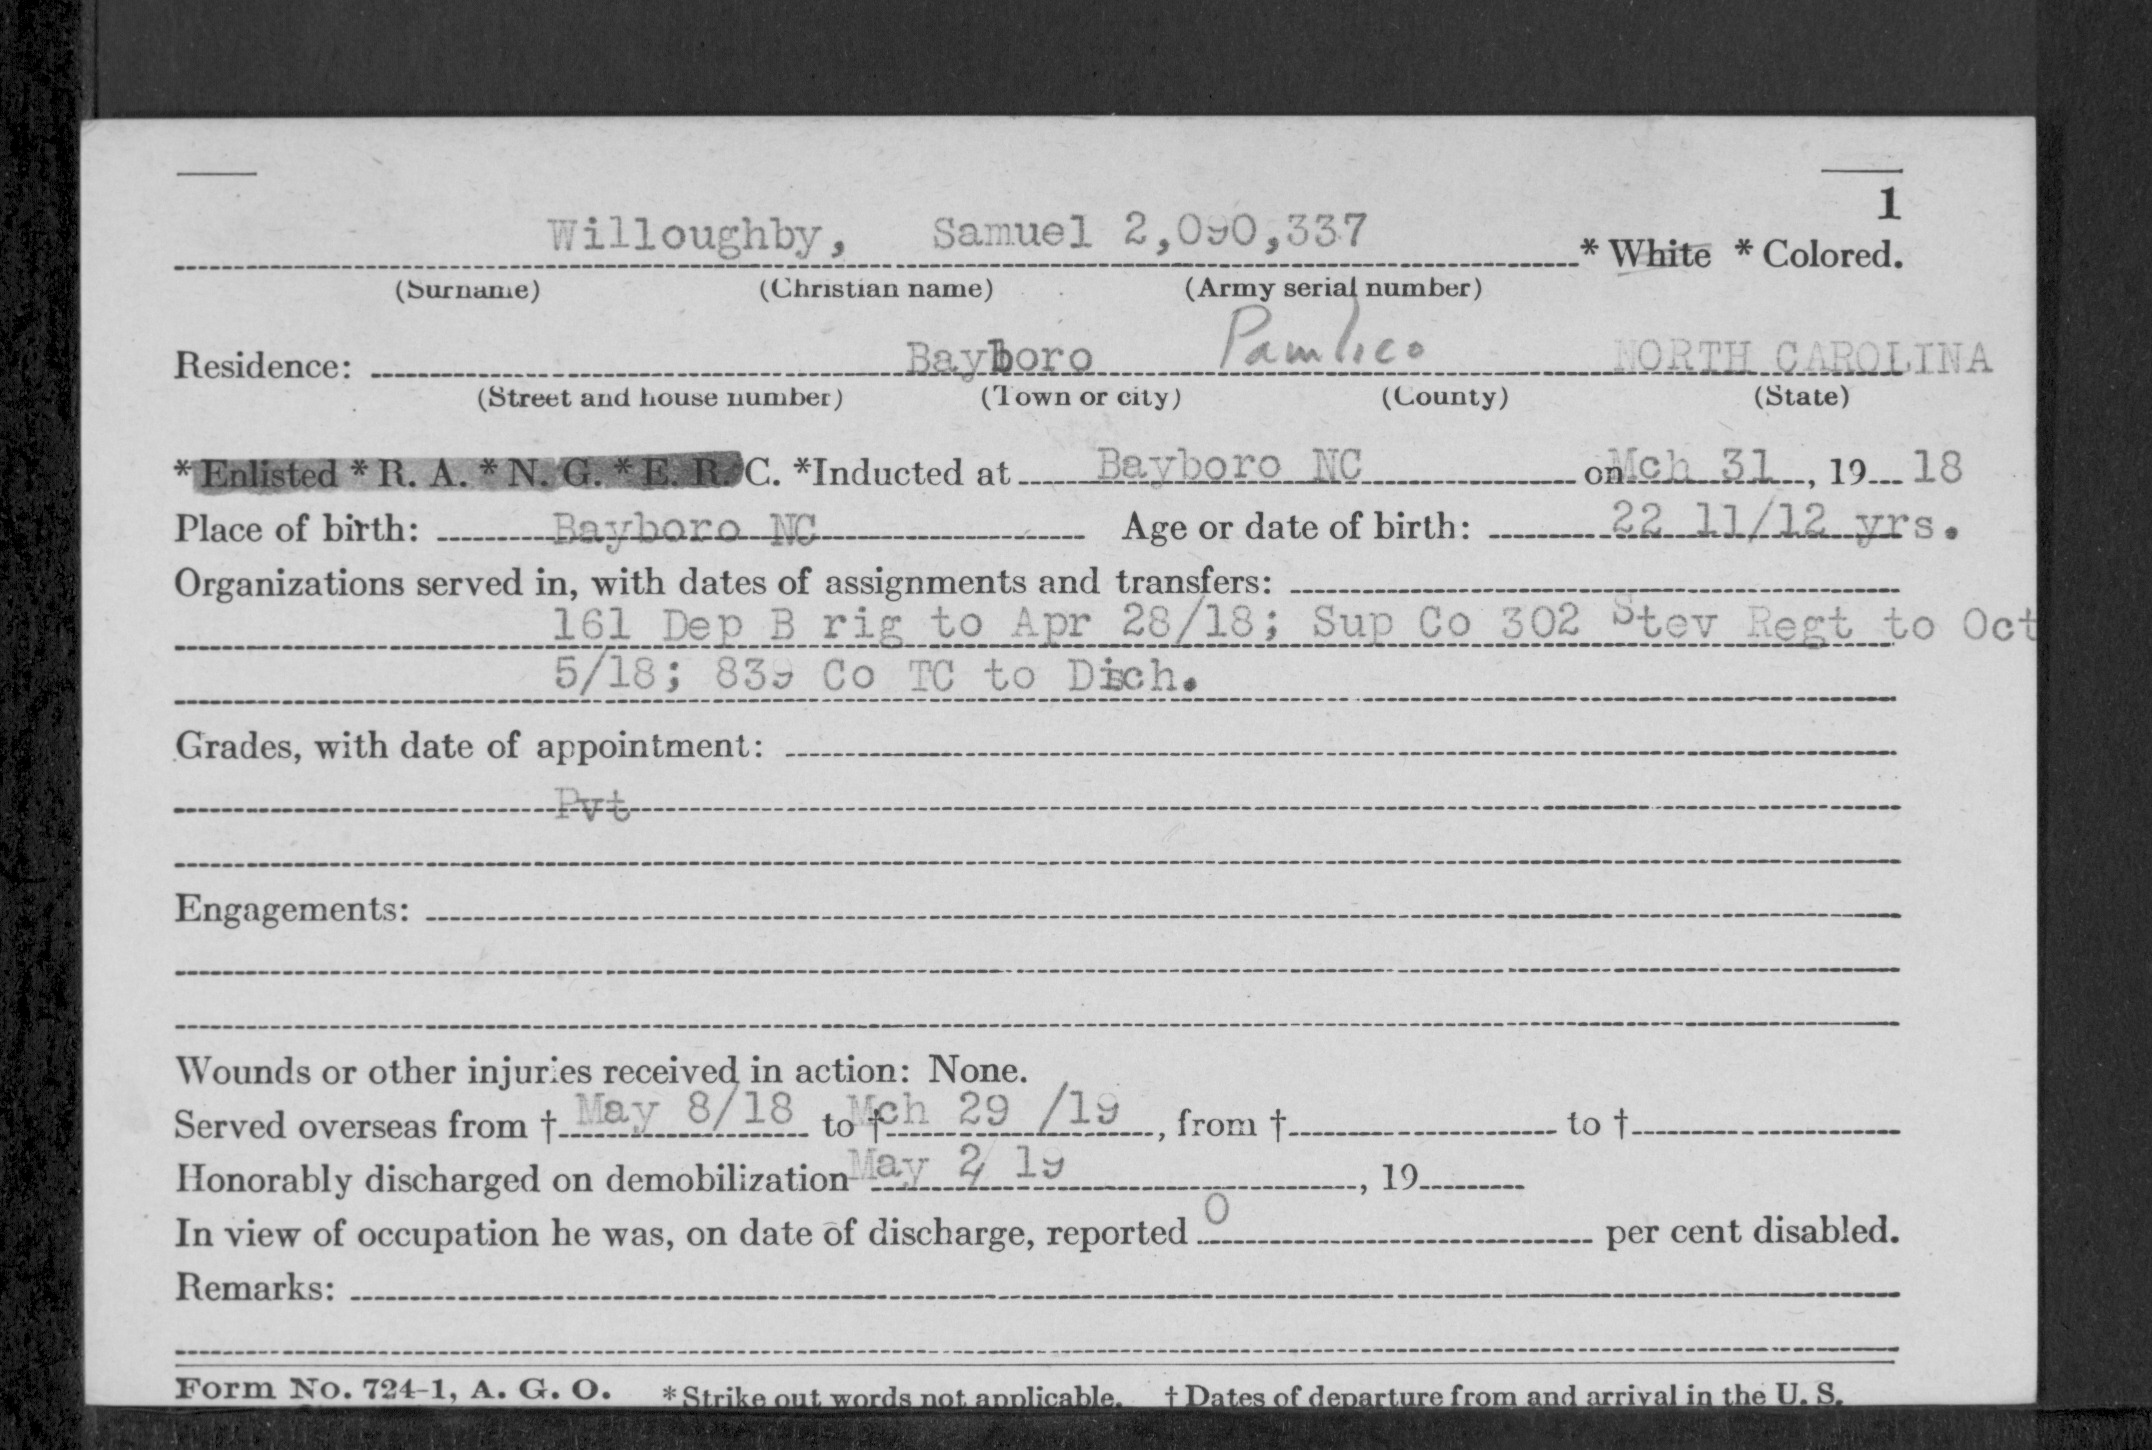 1
Willoughby, Samuel 2,090,337 * White * Colored.
(Surname) (Christian name) (Army serial number)
Residence: Bayboro Pamlico NORTH CAROLINA
(Street and house number) (Town or city) (County) (State)
* Enlisted * R. A. * N. G. * E. R. C. *Inducted at Bayboro NC on Mch 31, 19 18
Place of birth: Bayboro NC Age or date of birth: 22 11/12 yrs.
Organizations served in, with dates of assignments and transfers:
161 Dep B rig to Apr 28/18; Sup Co 302 Stev Regt to Oct
5/18; 839 Co TC to Disch.
Grades, with date of appointment:
Pvt
Engagements:
Wounds or other injuries received in action: None.
Served overseas from † May 8/18 to † Mch 29 /19, from † to †
Honorably discharged on demobilization May 2/ 19, 19
In view of occupation he was, on date of discharge, reported 0 per cent disabled.
Remarks:
Form No. 724-1, A. G. O. * Strike out words not applicable. † Dates of departure from and arrival in the U. S.